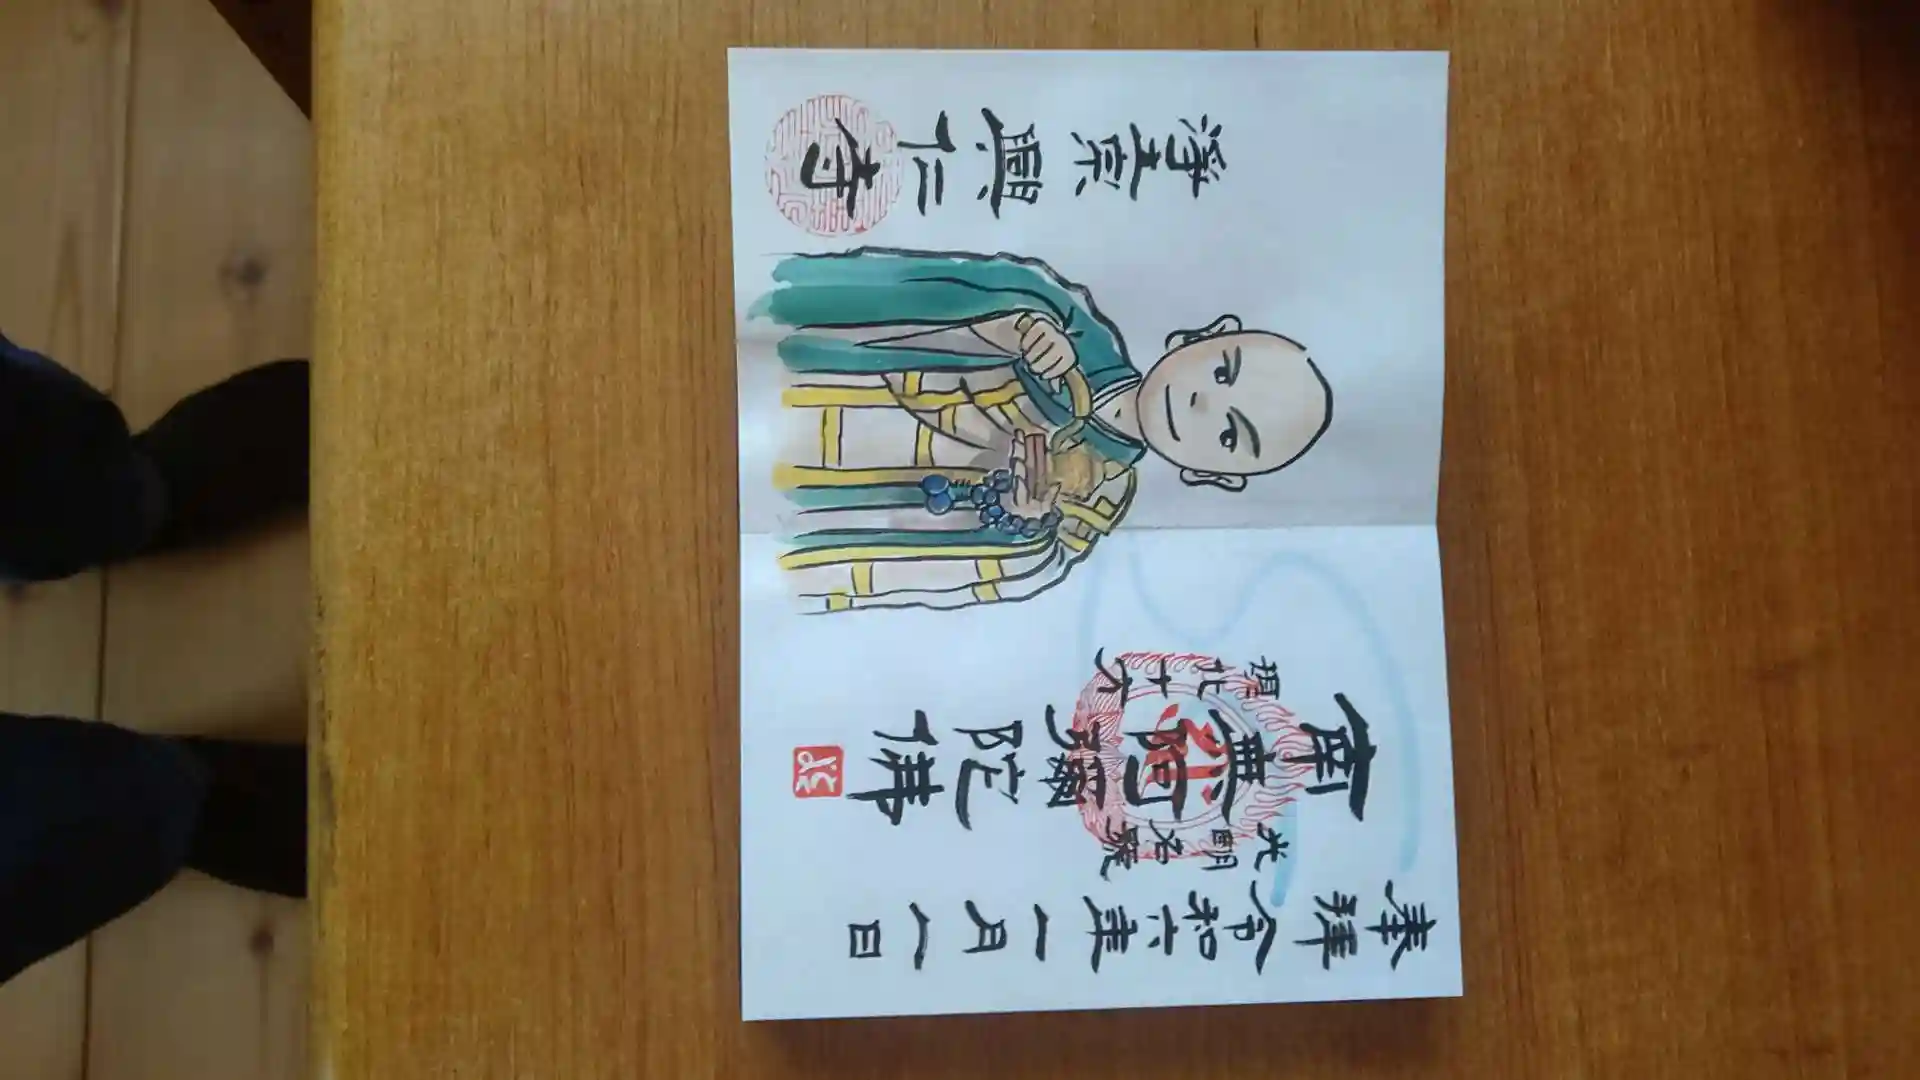 奉拝 令和六年一月一日
光明名號
南無阿彌陀佛
摂化十方
淨土宗 興仁寺